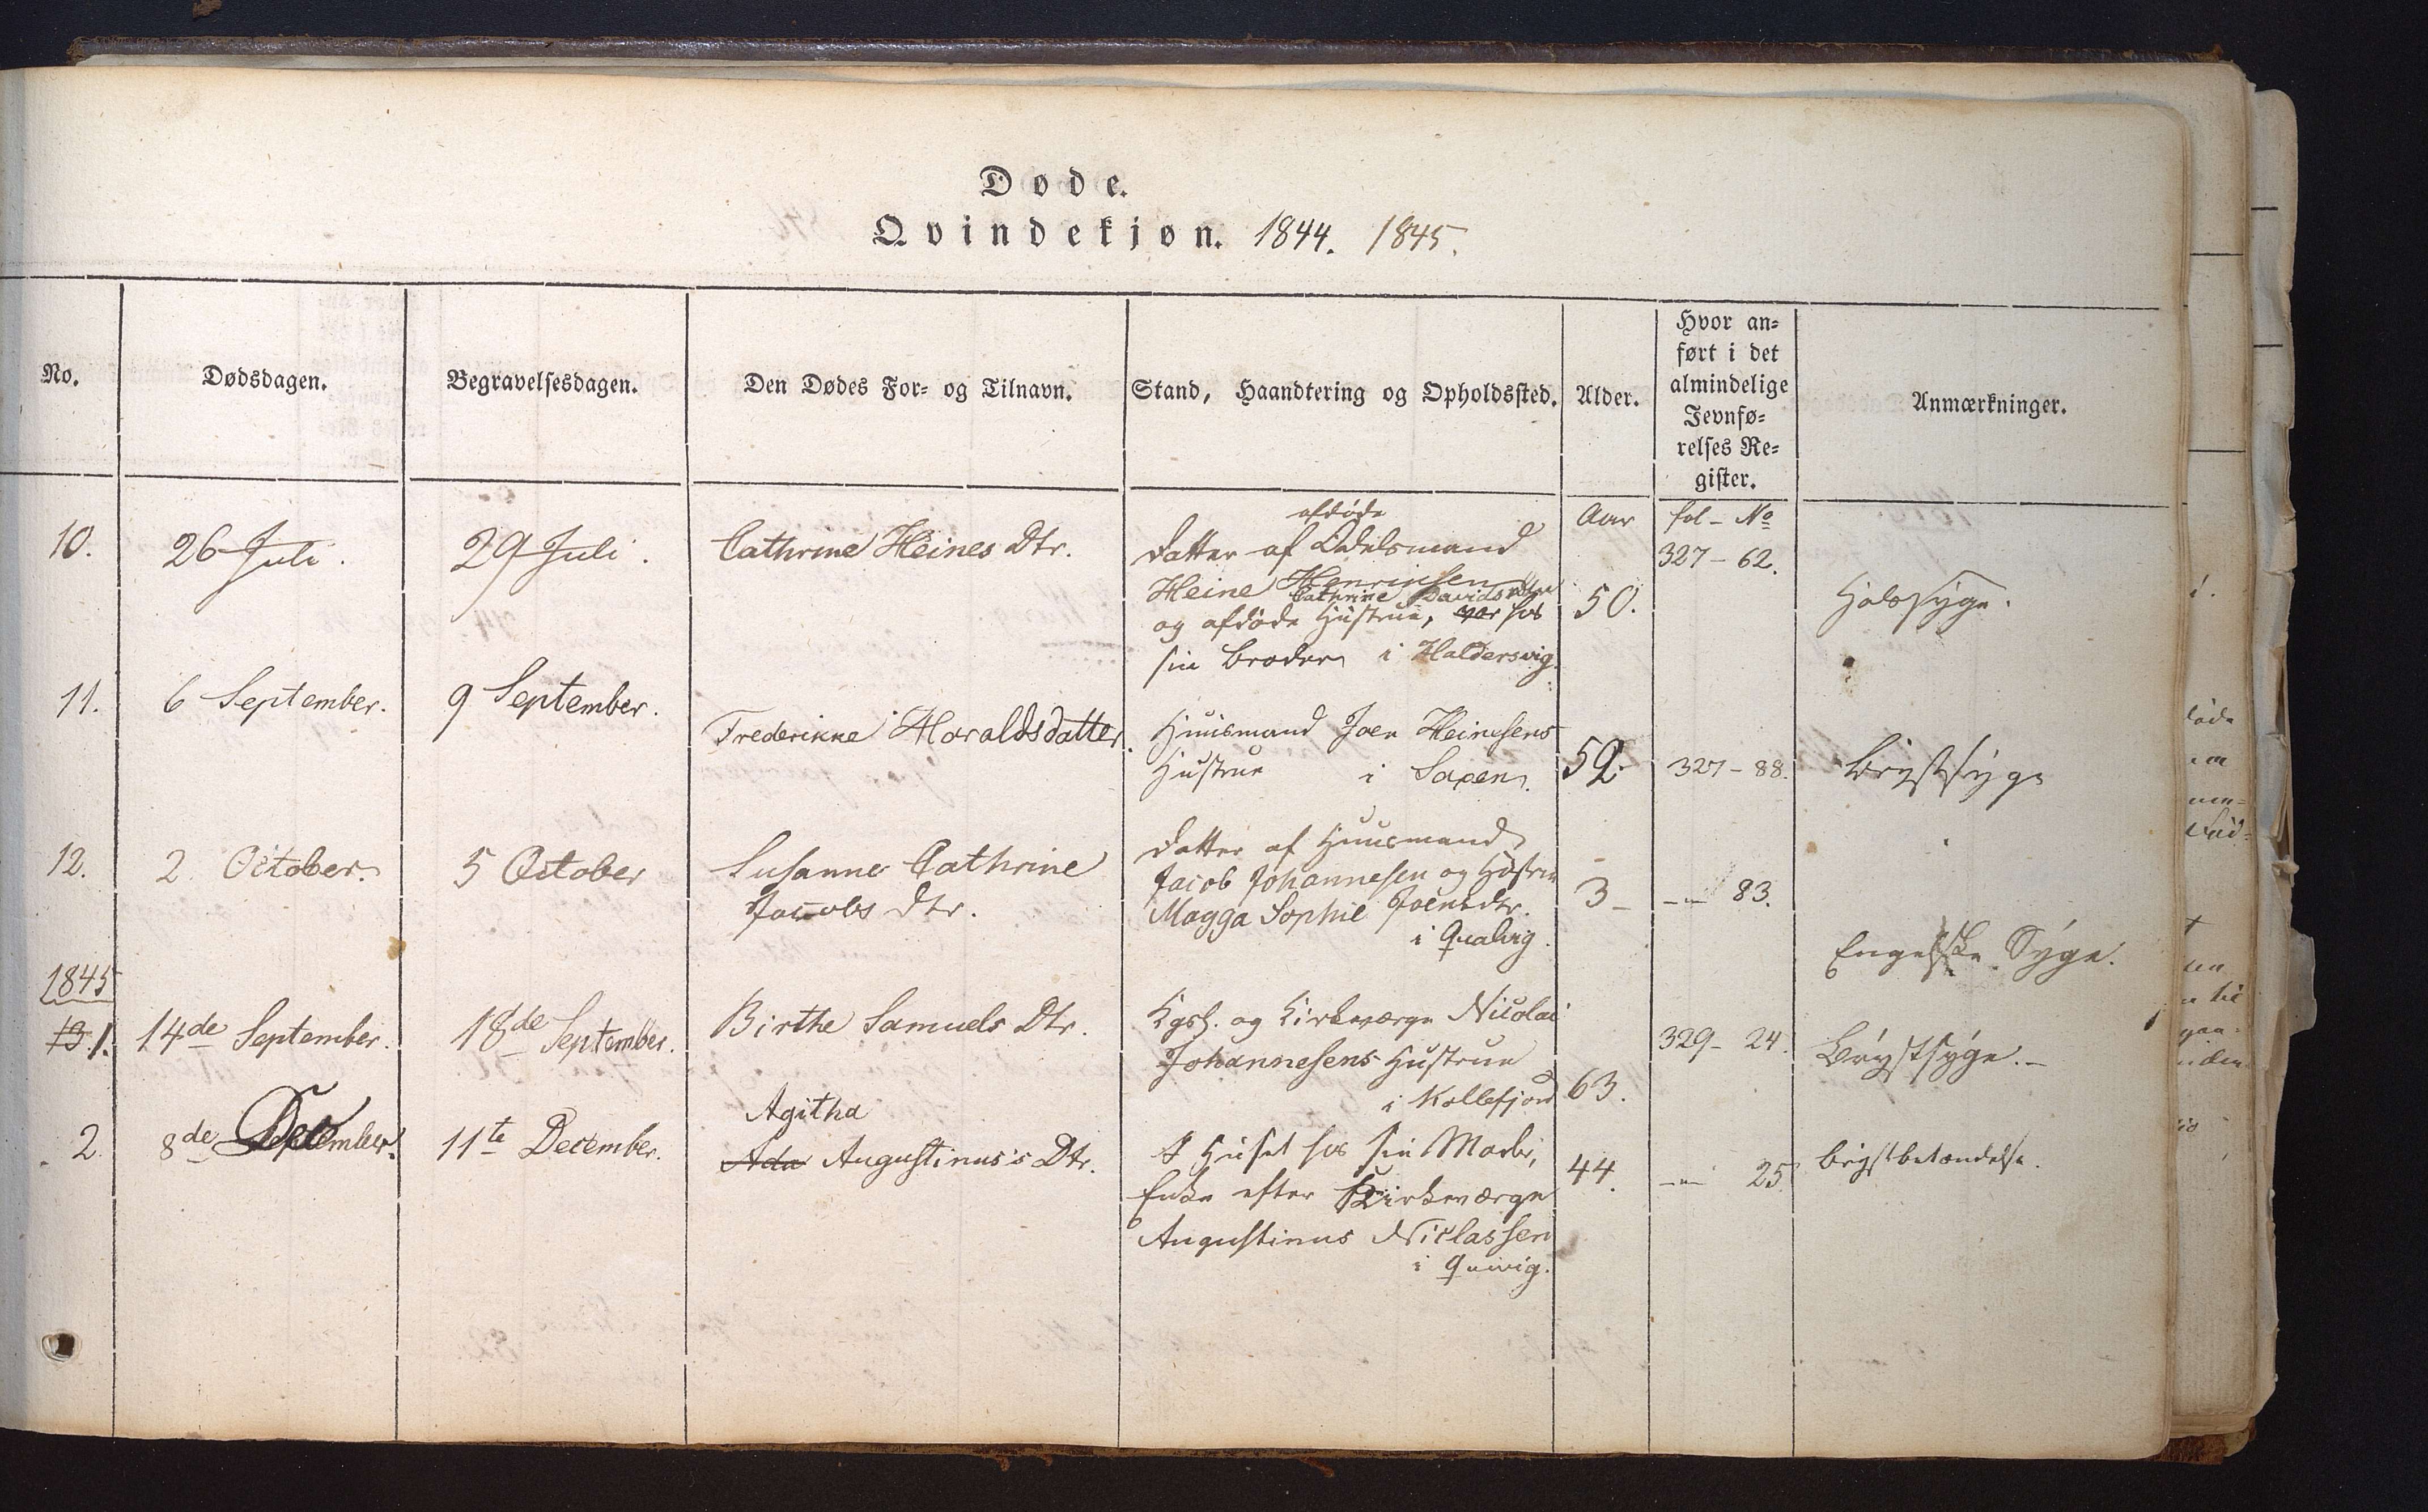 Døde.
Qvindekjøn. 1844. 1845.
No.
Dødsdagen.
Begravelsesdagen.
Den Dødes For- og Tilnavn.
Stand, Haandtering og Opholdssted.
Alder.
Hvor an-
ført i det
almindelige
Jevnfø-
relses Re-
gister.
Anmærkninger.
Aar
fol - No
10.
26 Juli.
29 Juli.
Cathrine Heines Dtr.
afdøde
Datter af Odelsmand
Heine Henrichsen
Cathrine Davidsdatter
og afdøde Hustrue, var hos
sin Broder i Haldersvig.
50.
327 - 62.
Halssyge.
11.
6 September.
9 September.
Frederikke Haraldsdatter.
Huusmand Joen Heinesens
Hustrue i Saxen.
52.
327 - 88.
Brystsyge
12.
2 October.
5 October
Susanne Cathrine
Jacobs Dtr.
Datter af Huusmand
Jacob Johannesen og Hustrue
Magga Sophie Joensdtr.
i Qualvig.
3 -
-"- 83.
Engelske Syge.
1845
13. 1.
14de September.
18de September.
Birthe Samuels Dtr.
Kgsb. og Kirkeværge Nicolai
Johannesens Hustrue
i Kollefjord
63.
329 - 24.
Brystsyge. -
2.
8de December.
11te December.
Agitha
Ada Augustinus's Dtr.
I Huset hos sin Moder,
Enke efter Kirkeværge
Augustinus Niclassen
i Quivig.
44.
-"- 25.
Brystbetændelse.